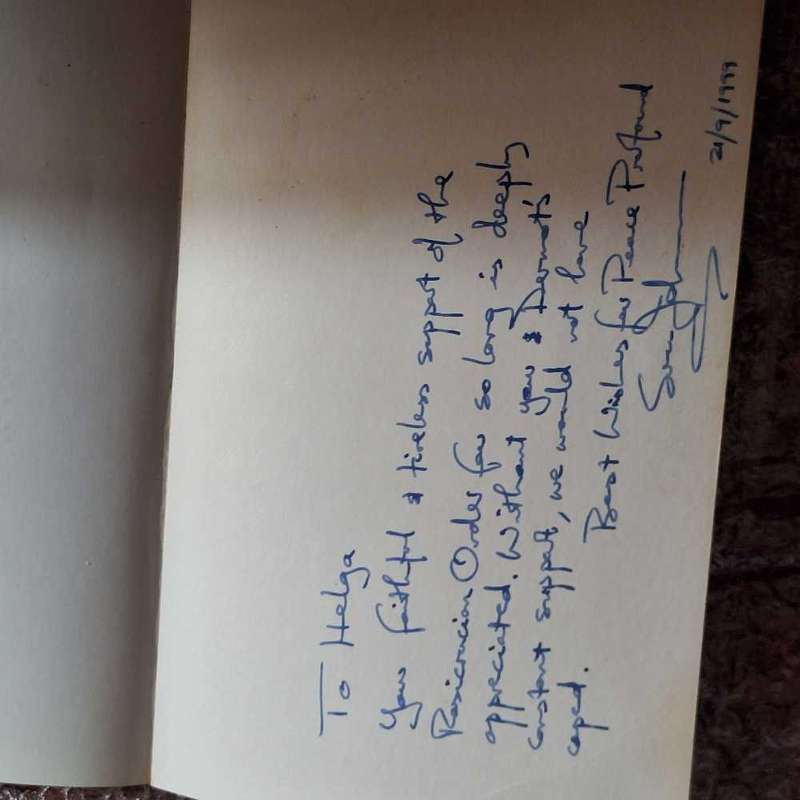 To Helga
Your faithful & tireless support of the
Rosicrucian Order for so long is deeply
appreciated. Without your & Dermot's
constant support, we would not have
coped.
Best Wishes for Peace Profound
Sven
21/9/1999